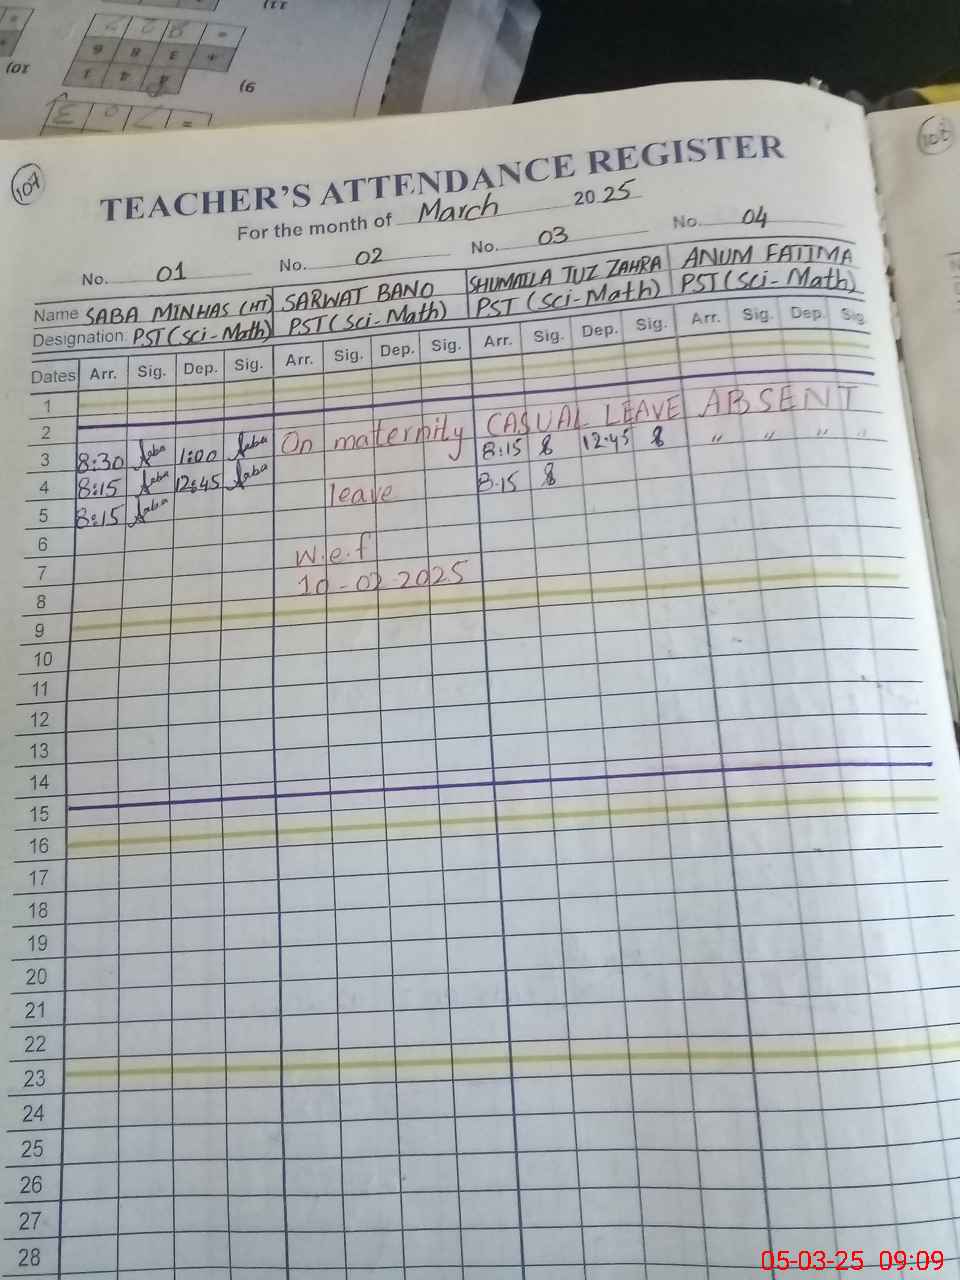 107
108
TEACHER'S ATTENDANCE REGISTER
For the month of March 2025
No. 01 No. 02 No. 03 No. 04
Name SABA MINHAS (HT) SARWAT BANO SHUMAILA TUZ ZAHRA ANUM FATIMA
Designation PST (Sci-Math) PST (Sci-Math) PST (Sci-Math) PST (Sci-Math)
Dates Arr. Sig. Dep. Sig. Arr. Sig. Dep. Sig. Arr. Sig. Dep. Sig. Arr. Sig. Dep. Sig.
1
2
3 8:30 Saba 1:00 Saba On maternity CASUAL LEAVE ABSENT
4 8:15 Saba 12:45 Saba leave 8:15 12:45 " " " "
5 8:15 Saba 8:15
6 W.e.f
7 10-02-2025
8
9
10
11
12
13
14
15
16
17
18
19
20
21
22
23
24
25
26
27
28
05-03-25 09:09